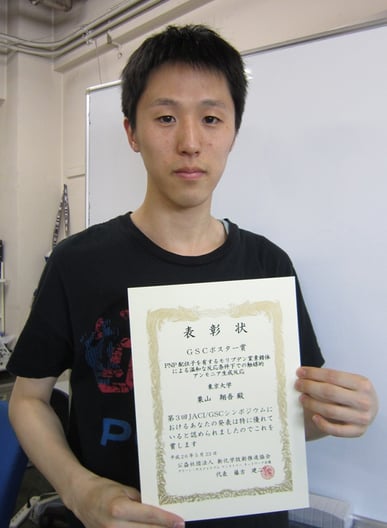 表彰状
GSCポスター賞
PNP配位子を有するモリブデン窒素錯体
による温和な反応条件下での触媒的
アンモニア生成反応
東京大学
栗山 翔吾 殿
第3回JACI/GSCシンポジウムに
おけるあなたの発表は特に優れて
いると認められましたのでこれを
賞します
平成26年5月23日
公益社団法人 新化学技術推進協会
代表
P